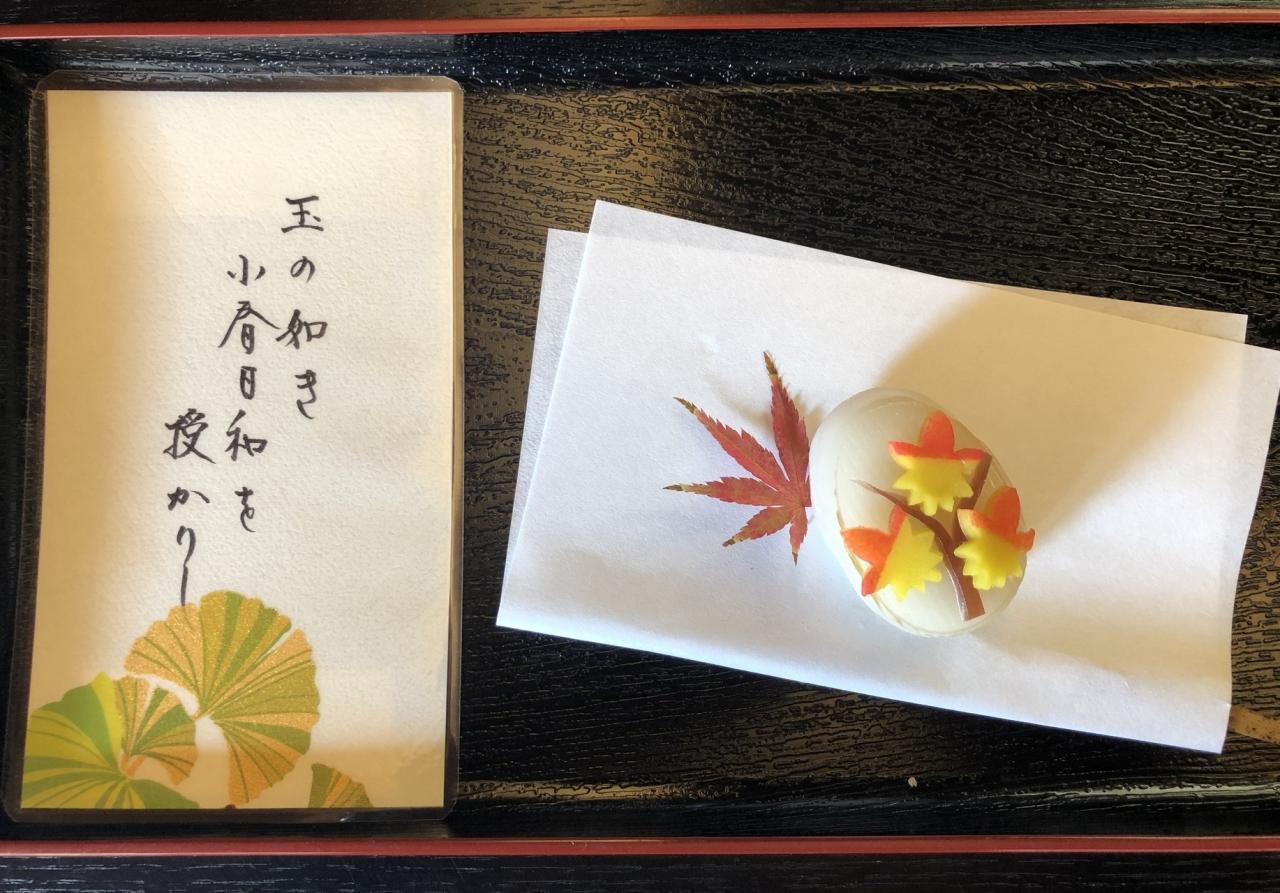 玉の如き
小春日和を
授かりし